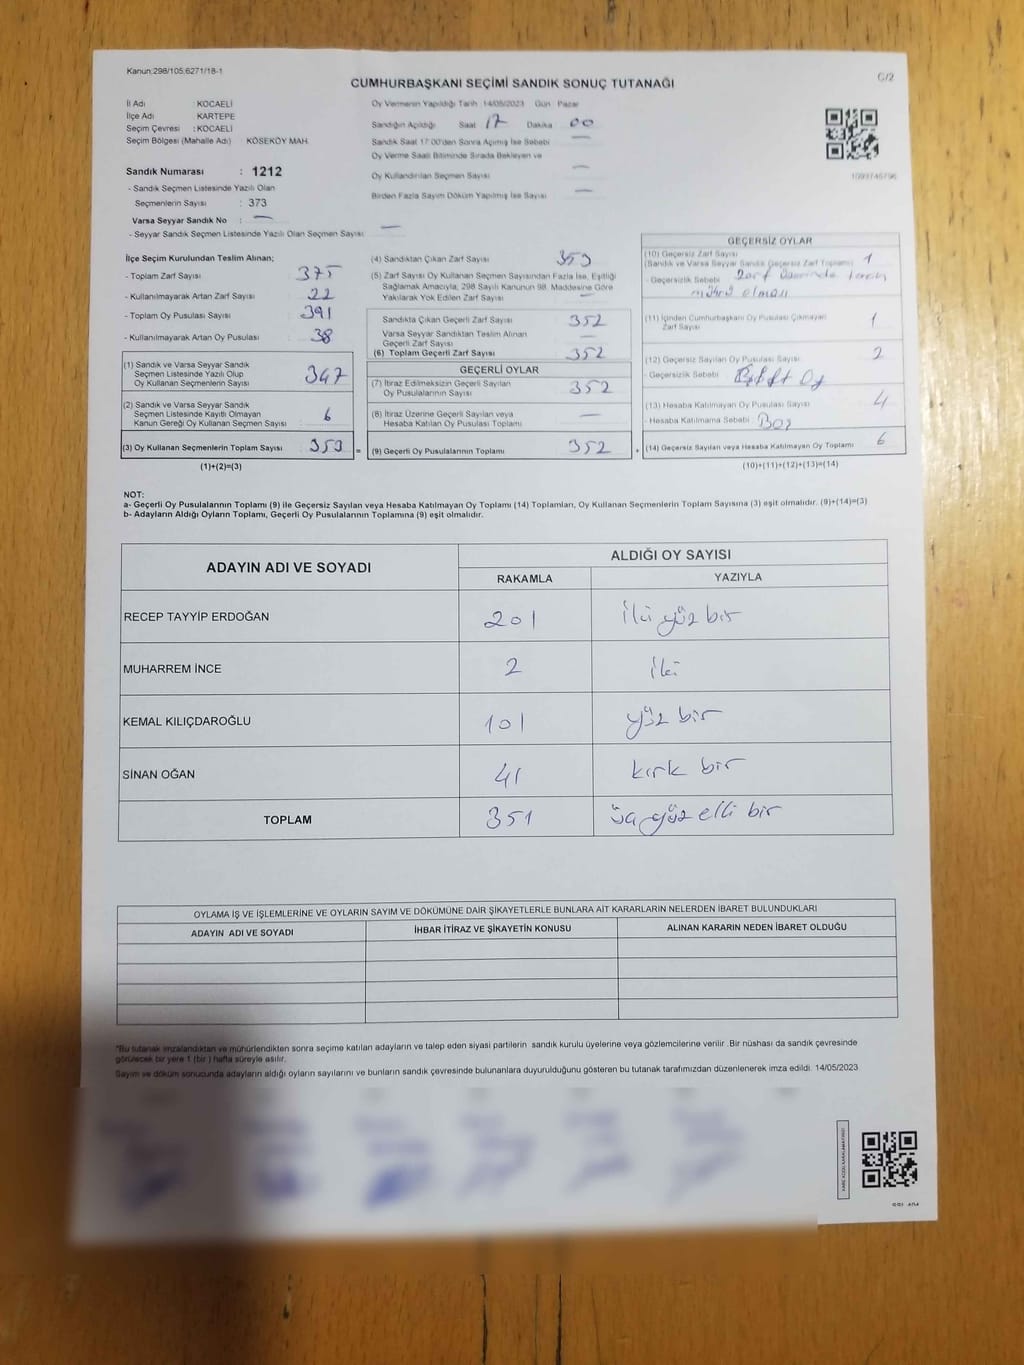 Kanun:298/105,6271/18-1
C/2
CUMHURBAŞKANI SEÇİMİ SANDIK SONUÇ TUTANAĞI
İl Adı KOCAELİ
İlçe Adı KARTEPE
Seçim Çevresi : KOCAELİ
Seçim Bölgesi (Mahalle Adı) KÖSEKÖY MAH.
Oy Vermenin Yapıldığı Tarih 14/05/2023 Gün Pazar
Sandığın Açıldığı Saat 17 Dakika 00
Sandık Saat 17:00'den Sonra Açımış İse Sebebi —
Oy Verme Saati Bitiminde Sırada Bekleyen ve
Oy Kullandırılan Seçmen Sayısı —
Birden Fazla Sayım Döküm Yapılmış İse Sayısı —
1093746796
Sandık Numarası : 1212
- Sandık Seçmen Listesinde Yazılı Olan
Seçmenlerin Sayısı : 373
Varsa Seyyar Sandık No : —
- Seyyar Sandık Seçmen Listesinde Yazılı Olan Seçmen Sayısı —
İlçe Seçim Kurulundan Teslim Alınan;
- Toplam Zarf Sayısı 375
- Kullanılmayarak Artan Zarf Sayısı 22
- Toplam Oy Pusulası Sayısı 391
- Kullanılmayarak Artan Oy Pusulası 38
(1) Sandık ve Varsa Seyyar Sandık
Seçmen Listesinde Yazılı Olup
Oy Kullanan Seçmenlerin Sayısı 347
(2) Sandık ve Varsa Seyyar Sandık
Seçmen Listesinde Kayıtlı Olmayan
Kanun Gereği Oy Kullanan Seçmen Sayısı 6
(3) Oy Kullanan Seçmenlerin Toplam Sayısı 353 =
(1)+(2)=(3)
(4) Sandıktan Çıkan Zarf Sayısı 353
(5) Zarf Sayısı Oy Kullanan Seçmen Sayısından Fazla İse, Eşitliği
Sağlamak Amacıyla, 298 Sayılı Kanunun 98. Maddesine Göre
Yakılarak Yok Edilen Zarf Sayısı —
Sandıkta Çıkan Geçerli Zarf Sayısı 352
Varsa Seyyar Sandıktan Teslim Alınan
Geçerli Zarf Sayısı —
(6) Toplam Geçerli Zarf Sayısı 352
GEÇERLİ OYLAR
(7) İtiraz Edilmeksizin Geçerli Sayılan
Oy Pusulalarının Sayısı 352
(8) İtiraz Üzerine Geçerli Sayılan veya
Hesaba Katılan Oy Pusulası Toplamı —
(9) Geçerli Oy Pusulalarının Toplamı 352 +
GEÇERSİZ OYLAR
(10) Geçersiz Zarf Sayısı
(Sandık ve Varsa Seyyar Sandık Geçersiz Zarf Toplamı) 1
- Geçersizlik Sebebi Zarf üzerinde
mührü olması
(11) İçinden Cumhurbaşkanı Oy Pusulası Çıkmayan
Zarf Sayısı 1
(12) Geçersiz Sayılan Oy Pusulası Sayısı 2
- Geçersizlik Sebebi Çift Oy
(13) Hesaba Katılmayan Oy Pusulası Sayısı 4
- Hesaba Katılmama Sebebi : Boş
(14) Geçersiz Sayılan veya Hesaba Katılmayan Oy Toplamı 6
(10)+(11)+(12)+(13)=(14)
NOT:
a- Geçerli Oy Pusulalarının Toplamı (9) ile Geçersiz Sayılan veya Hesaba Katılmayan Oy Toplamı (14) Toplamları, Oy Kullanan Seçmenlerin Toplam Sayısına (3) eşit olmalıdır. (9)+(14)=(3)
b- Adayların Aldığı Oyların Toplamı, Geçerli Oy Pusulalarının Toplamına (9) eşit olmalıdır.
ADAYIN ADI VE SOYADI
ALDIĞI OY SAYISI
RAKAMLA YAZIYLA
RECEP TAYYİP ERDOĞAN 201 iki yüz bir
MUHARREM İNCE 2 iki
KEMAL KILIÇDAROĞLU 101 yüz bir
SİNAN OĞAN 41 kırk bir
TOPLAM 351 üç yüz elli bir
OYLAMA İŞ VE İŞLEMLERİNE VE OYLARIN SAYIM VE DÖKÜMÜNE DAİR ŞİKAYETLERLE BUNLARA AİT KARARLARIN NELERDEN İBARET BULUNDUKLARI
ADAYIN ADI VE SOYADI İHBAR İTİRAZ VE ŞİKAYETİN KONUSU ALINAN KARARIN NEDEN İBARET OLDUĞU
*Bu tutanak imzalandıktan ve mühürlendikten sonra seçime katılan adayların ve talep eden siyasi partilerin sandık kurulu üyelerine veya gözlemcilerine verilir. Bir nüshası da sandık çevresinde
görülecek bir yere 1 (bir ) hafta süreyle asılır.
Sayım ve döküm sonucunda adayların aldığı oyların sayılarını ve bunların sandık çevresinde bulunanlara duyurulduğunu gösteren bu tutanak tarafımızdan düzenlenerek imza edildi. 14/05/2023